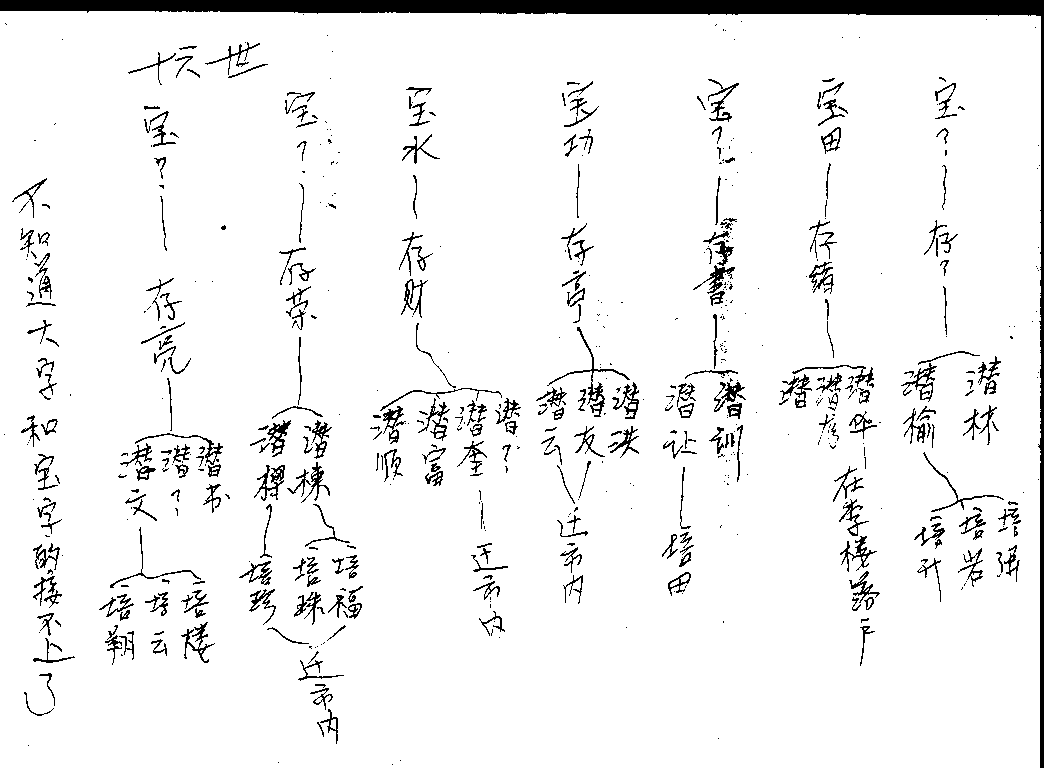 十六世
宝？
存？
潜林
潜榆
培强
培岩
培升
宝田
存绪
潜华
潜秀
潜
在李楼落户
宝？
存書
潜训
潜让
培田
宝功
存亭
潜洪
潜友
潜云
迁市内
宝水
存财
潜？
潜奎
潜富
潜顺
迁市内
宝？
存荣
潜栋
潜樨
培福
培珠
培珍
迁市内
宝？
存亮
潜书
潜？
潜文
培楼
培云
培翔
不知道大字和宝字的接不上了